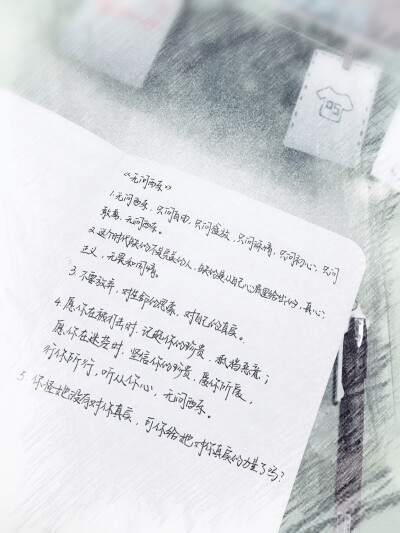 《无问西东》
1.无问西东，只问自由，只问盛放，只问深情，只问初心，只问
敢勇，无问西东。
2.这个时代缺的不是完美的人，缺的是从自己心底里给出的，真心，
正义，无畏和同情。
3.不要放弃，对生命的思索，对自己的真实。
4.愿你在被打击时，记起你的珍贵，抵挡恶意；
愿你在迷茫时，坚信你的珍贵，爱你所爱，
行你所行，听从你心，无问西东。
5.你怪她没有对你真实，可你给她对你真实的力量了吗？